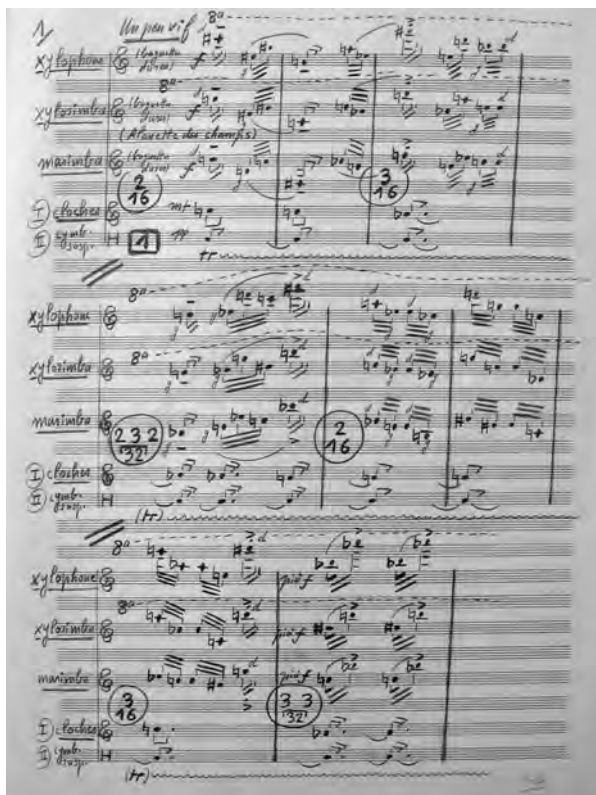 1/ Un peu vif
8ª
xylophone (baguettes dures) f
8ª
xylorimba (baguettes dures) f
(Alouette des champs)
marimba (baguettes dures) f
2 16 3 16
I) cloches mf
II) cymb. susp. 1 pp
tr
8ª
xylophone
8ª
xylorimba
marimba
2 3 2 32 2 16
I) cloches
II) cymb. susp.
(tr)
8ª
xylophone più f
8ª
xylorimba più f
marimba più f
3 16 3 3 32
I) cloches
II) cymb. susp.
(tr)